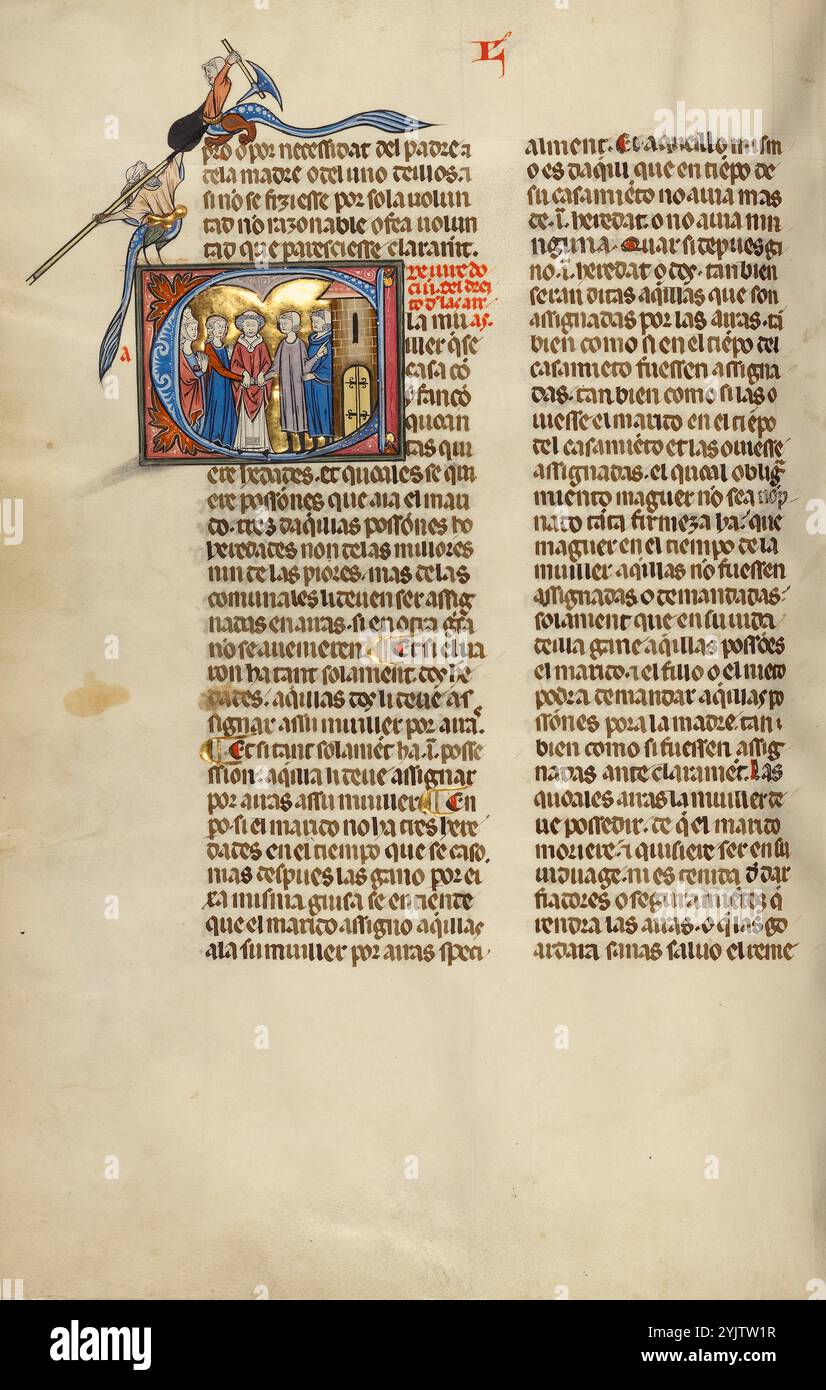 L
pro o por necessidat del padre ⁊
dela madre o del uno dellos. ⁊
si no se fiziesse por sola uolun
tad no razonable o fea uolun
tad que paresciesse clarament.
De iure do
cium. del drei
to dlas arr
as.
a
la mu
iller q̃ se
casa cõ
yfançõ
quoan
tas qui
ere hedades. et quoales se qui
ere possiõnes que aia el mari
do. tres daq̃llas possiõnes ho
heredades non delas meillores
nin de las piores. mas de las
comunales li deuen ser assig
nadas en arras. si en otra g̃sa
no se auenieren. Et si el ua
ron ha tant solament. dos he
dades. aq̃llas dos li deue as
signar assu muiller por arrã.
Et si tant solamẽt ha .i. posse
ssion. aq̃lla li deue assignar
por arras assu muiller. Em
po. si el marido no ha tres here
dades en el tiempo que se caso.
mas despues las gano por ei
xa misma guisa se entiende
que el marido assigno aq̃llas
ala su muiller por arras speci
alment. Et aquello mism
o es daqui que en tiẽpo de
su casamiẽto no auia mas
de .i. heredat. o no auia nin
nguna. Quar si depues ga
no .i. heredat o dos. tan bien
seran ditas aq̃llas que son
assignadas por las arras. tã
bien como si en el tiẽpo del
casamiẽto fuessen assigna
das. tan bien como si las o
uiesse el marido en el tiẽpo
del casamiẽto et las ouiesse
assignadas. el quoal oblig̃
miento maguer no sea nop
nado tãta firmeza ha. que
maguer en el tiempo de la
muiller aq̃llas nõ fuessen
assignadas o demandadas.
solament que en su uida
deilla gane aq̃llas possiões
el marido. ⁊ el fillo o el nieto
podra demandar aq̃llas po
ssiõnes pora la madre. tan
bien como si fuessen assig
nadas ante claramẽt. Las
quoales arras la muiller de
ue possedir. de q̃ el marido
moriere. ⁊ quisiere ser en su
uiduage. ni es tenida d̃ dar
fiadores o seguramiẽtez q̃
rendra las arras. o q̃ las go
ardara sanas saluo el reme
alamy
2YJTW1R